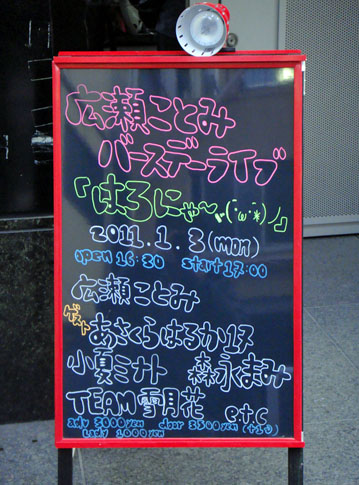 広瀬ことみ
バースデーライブ
「はろにゃ〜(･ω･*)」
2011.1.3(mon)
open 16:30 start 17:00
広瀬ことみ
ゲスト あさくらはるか17
小夏ミナト 森永まみ
TEAM雪月花 etc
adv 3000yen door 3500yen (+1D)
Lady 1000yen